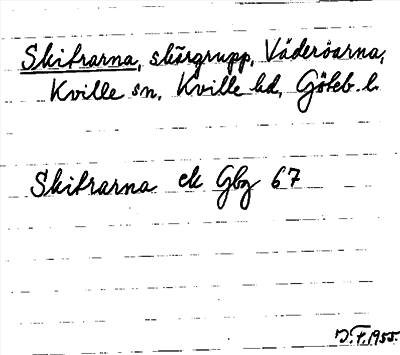 Skitrarna, skärgrupp, Väderöarna,
Kville sn, Kville hd, Göteb. l.
Skitrarna ek Gbg 67
1955.